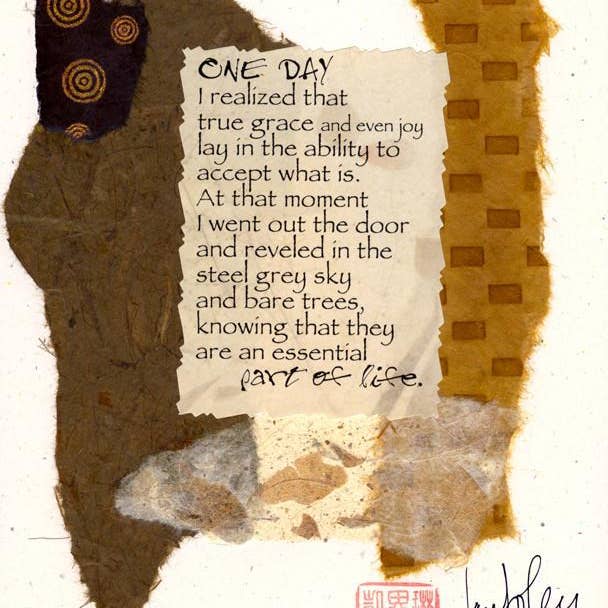 ONE DAY
I realized that
true grace and even joy
lay in the ability to
accept what is.
At that moment
I went out the door
and reveled in the
steel grey sky
and bare trees,
knowing that they
are an essential
part of life.